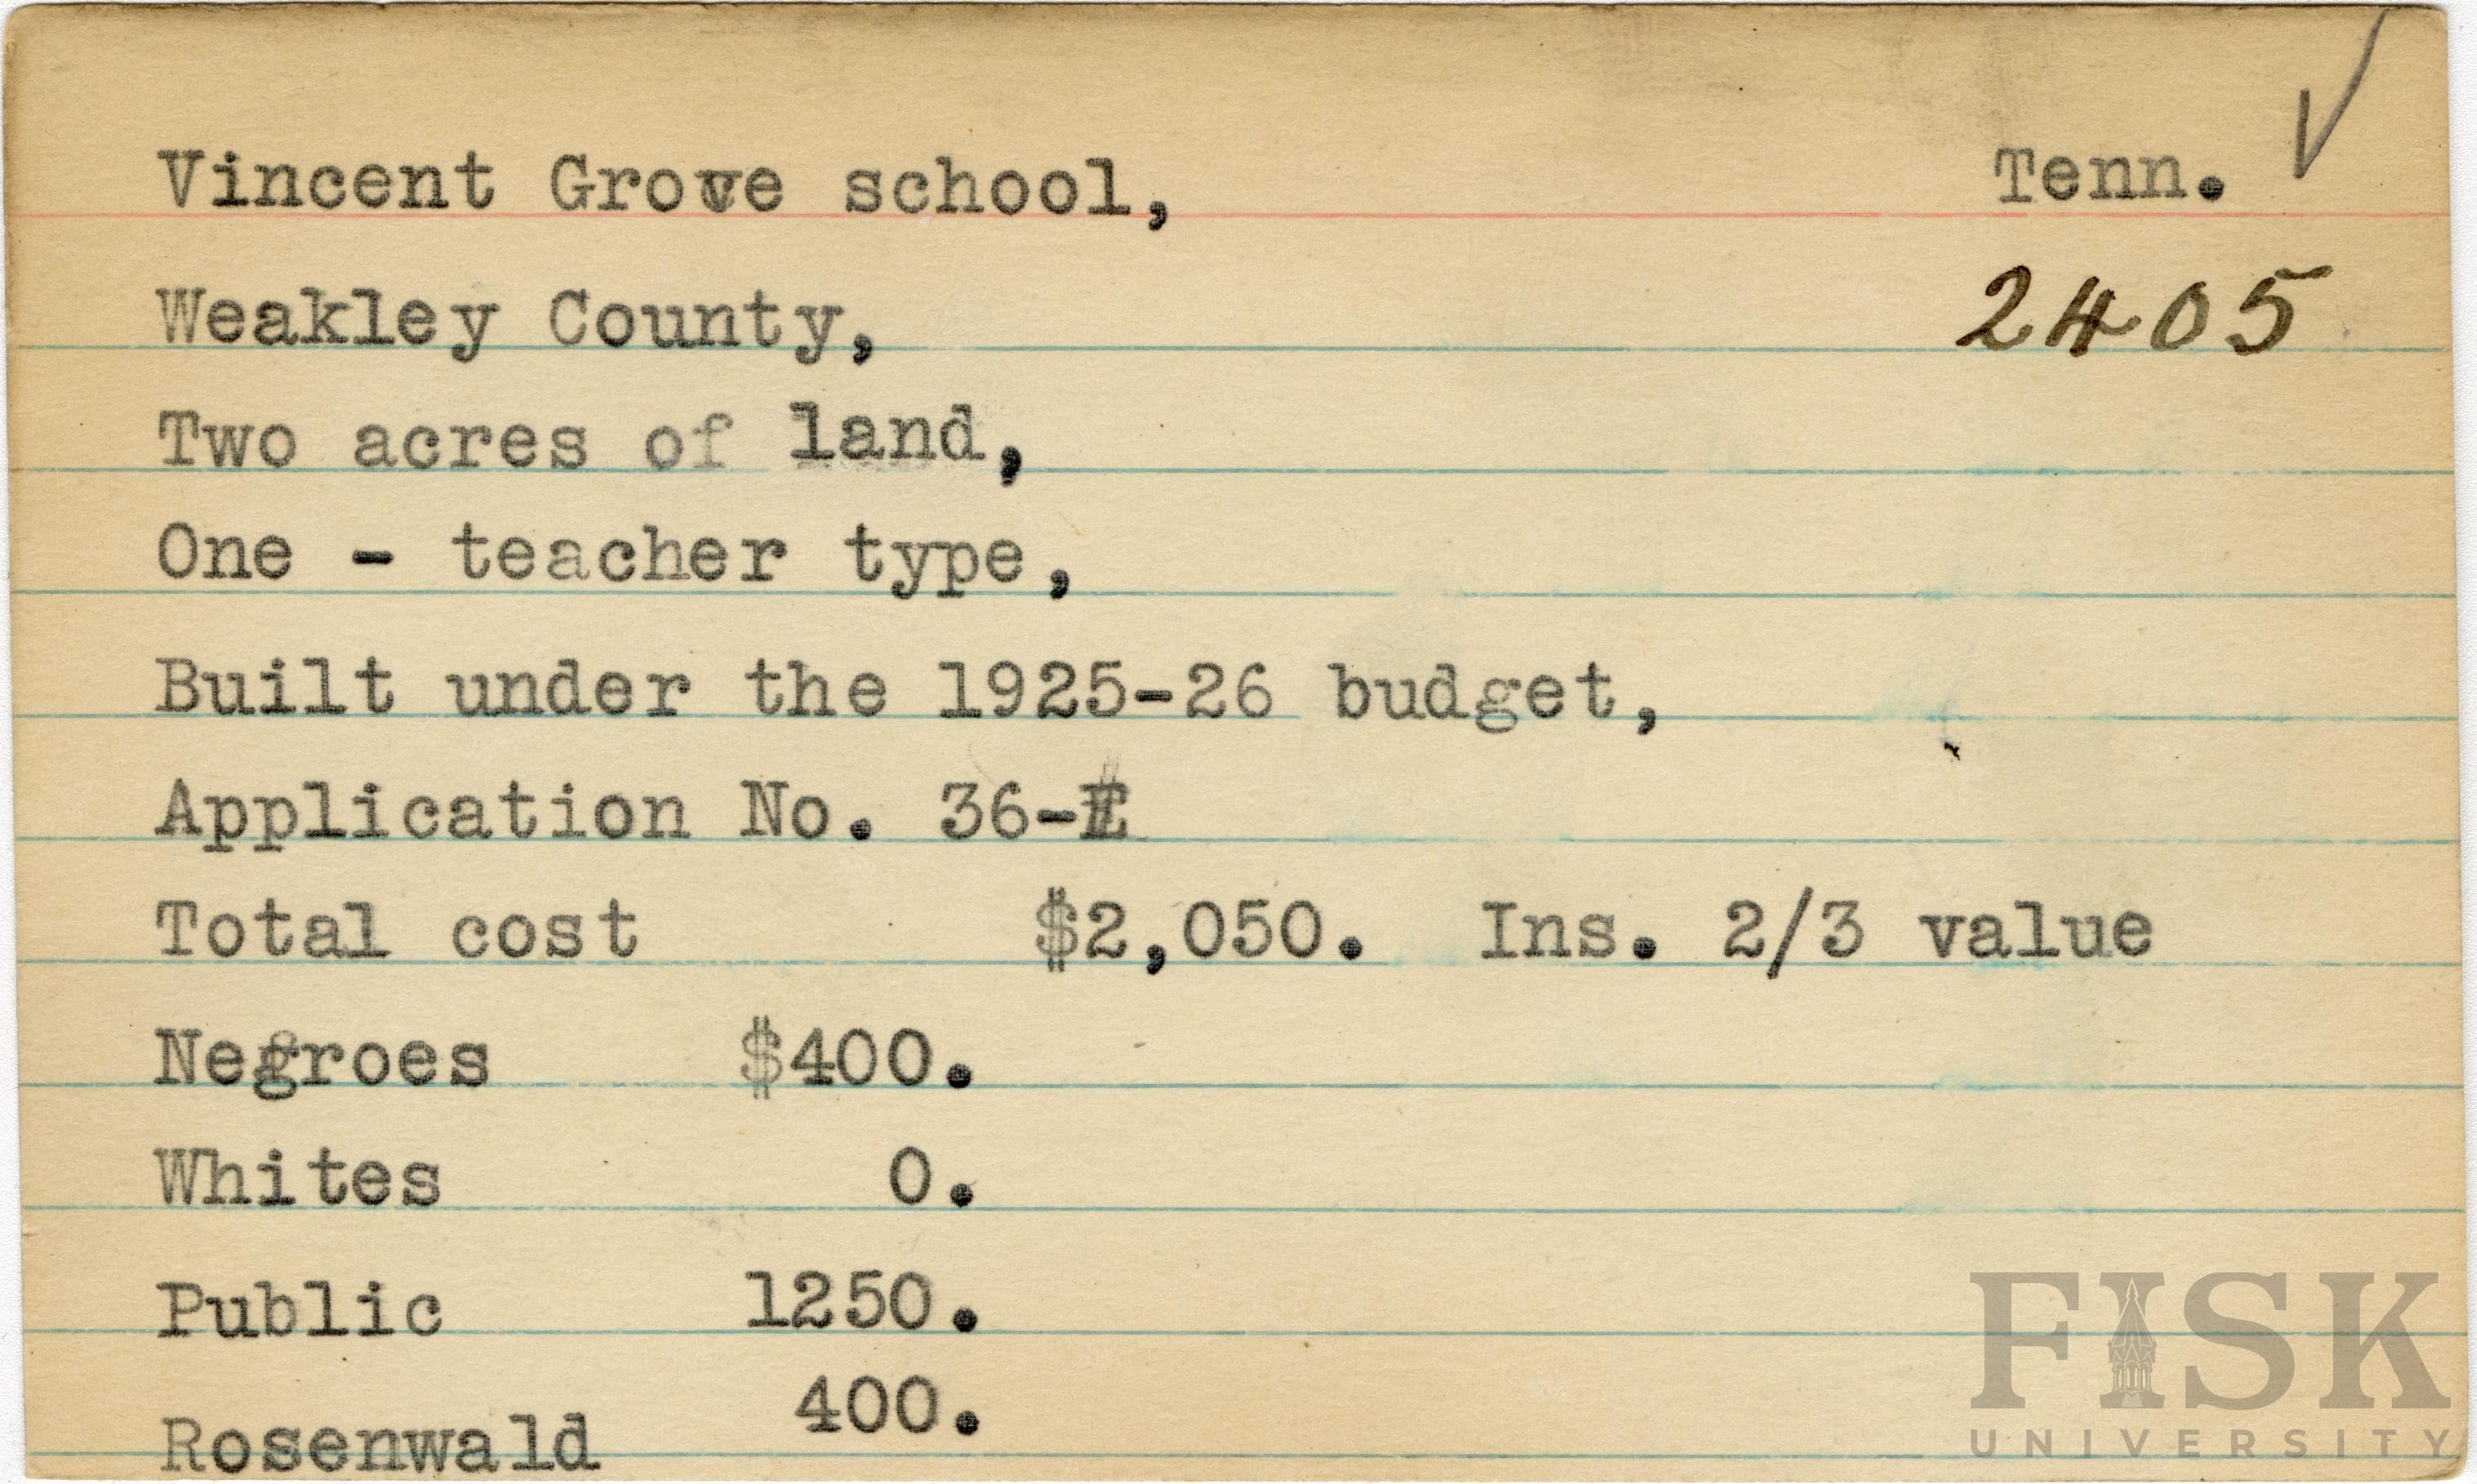 Vincent Grove school, Tenn. ✓
Weakley County, 2405
Two acres of land,
One - teacher type,
Built under the 1925-26 budget,
Application No. 36-
Total cost $2,050. Ins. 2/3 value
Negroes $400.
Whites 0.
Public 1250.
Rosenwald 400.
FISK
UNIVERSITY